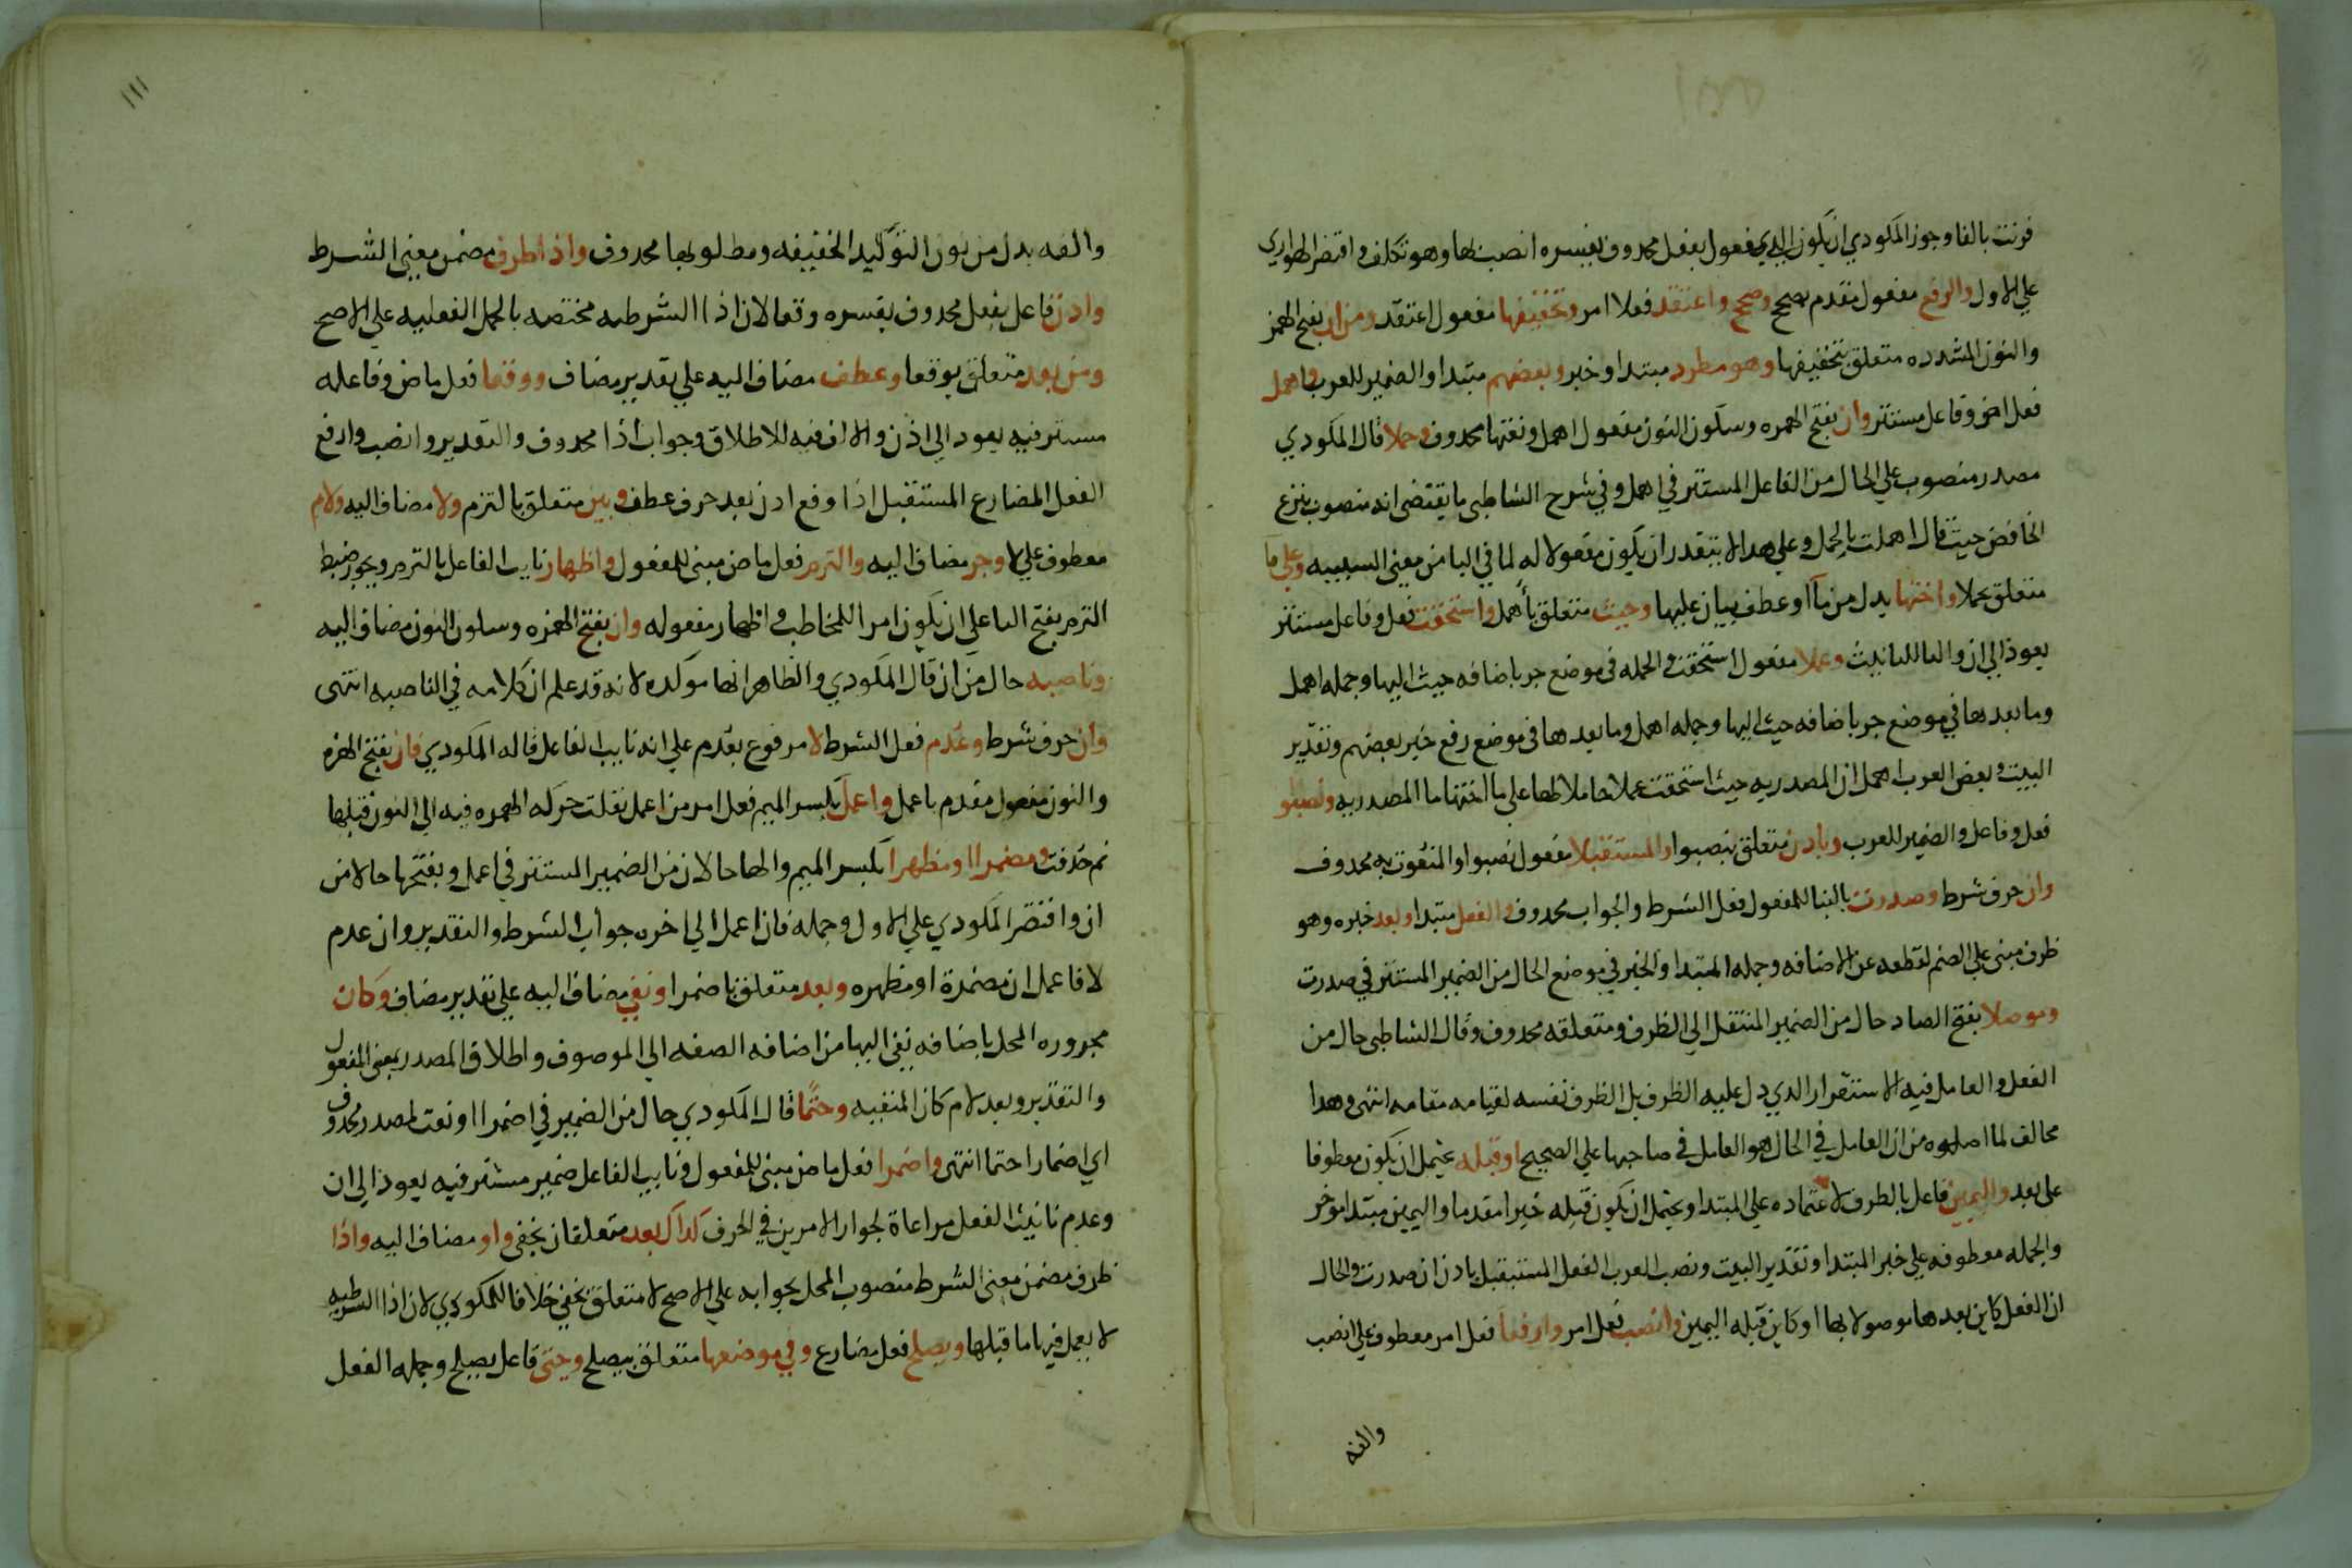 قرنت بالفا وجوز المكودي ان يكون التي مفعول بفعل محدوف يفسره انصب بها وهو تكلف واقتصر الهواري
علي الاول والرفع مفعول مقدم بصحح وصحح واعتقد فعلا امر وتخفيفها مفعول اعتقد ومن ان بفتح الهمز
والنون المشدده متعلق بتخفيفها وهو مطرد مبتدا وخبر وبعضهم مبتدا والضمير للعرب واهمل
فعل ماض وفاعل مستتر وان بفتح الهمزه وسكون النون مفعول اهمل ونعتها محدوف وحملا قال المكودي
مصدر منصوب علي الحال من الفاعل المستتر في اهمل وفي شرح الشاطبي ما يقتضي انه منصوب بنزع
الخافض حيث قال اهملت بالحمل وعلي هدا لا يتبقدر ان يكون مفعولا له لما في البا من معني السببيه وعلي ما
متعلق بحملا واختها بدل من ما او عطف بيان عليها وحيث متعلق باهمل واستحقت فعل وفاعل مستتر
يعود الي ان والتا للتانيث وعملا مفعول استحقت والجمله في موضع جر باضافه حيث اليها وجمله اهمل
وما بعدها في موضع جر باضافه حيث اليها وجمله اهمل وما بعدها في موضع رفع خبر بعضهم وتقدير
البيت وبعض العرب اهمل ان المصدريه حيث استحقت عملا حاملا لها علي ما اختها ما المصدريه ونصبو
فعل وفاعل والضمير للعرب وبادن متعلق بنصبوا والمستقبلا مفعول نصبوا والمنعوت به محدوف
وان حرف شرط وصدرت بالبنا للمفعول فعل الشرط والجواب محدوف والفعل مبتدا وبعد خبره وهو
ظرف مبني علي الضم لقطعه عن الاضافه وجمله المبتدا والخبر في موضع الحال من الضمير المستتر في صدرت
وموصلا بفتح الصاد حال من الضمير المنتقل الي الظرف ومتعلقه محدوف وقال الشاطبي حال من
الفعل والعامل فيه الاستقرار الدي دل عليه الظرف بل الظرف نفسه لقيامه مقامه انتهي وهدا
مخالف لما اصلوه من ان العامل في الحال هو العامل في صاحبها علي الصحيح او قبله يحتمل ان يكون معطوفا
علي بعد واليمين فاعل بالظرف لاعتماده علي المبتدا ويحتمل ان يكون قبله خبرا مقدما واليمين مبتدا موخر
والجمله معطوفه علي خبر المبتدا وتقدير البيت ونصب العرب الفعل المستبقبل بادن ان صدرت والحال
ان الفعل كاين بعدها موصولا بها او كاين قبله اليمين وانصب فعل امر وارفعا فعل امر معطوف علي انصب
والفه

١١١
والفه بدل من نون التوكيد الخفيفه ومطلوبها محدوف واذا ظرف مضمن معني الشرط
واذن فاعل بفعل محدوف يفسره وقعا لان اذا الشرطيه مختصه بالجمل الفعليه علي الاصح
ومن بعد متعلق بوقعا وعطف مضاف اليه علي تقدير مضاف ووقعا فعل ماض وفاعله
مستتر فيه يعود الي اذن والالف فيه للاطلاق وجواب اذا محدوف والتقدير وانصب وارفع
الفعل المضارع المستقبل اذا وقع ادن بعد حرف عطف وبين متعلق بالتزم ولا مضاف اليه ولام
معطوف علي لا وجر مضاف اليه والتزم فعل ماض مبني للمفعول واظهار نايب الفاعل بالتزم ويجوز ضبط
التزم بفتح التا علي ان يكون امرا للمخاطب واظهار مفعوله وان بفتح الهمزه وسكون النون مضاف اليه
وناصبه حال من ان قال المكودي والظاهر انها موكده لانه قد علم ان كلامه في الناصبه انتهي
وان حرف شرط وعدم فعل الشرط لا مرفوع بعدم علي انه نايب الفاعل قاله المكودي فان بفتح الهمزه
والنون مفعول مقدم باعمل واعمل بكسر الميم فعل امر من اعمل نقلت حركه الهمزه فيه الي النون قبلها
ثم حذفت ومضمرا او مظهرا بكسر الميم والها حالان من الضمير المستتر في اعمل وبفتحها حالا من
ان واقتصر المكودي علي الاول وجمله فان اعمل الي اخره جواب الشرط والتقدير وان عدم
لا فاعمل ان مضمرة او مظهره وبعد متعلق باضمرا ونفي مضاف اليه علي تقدير مضاف وكان
مجروره المحل باضافه نفي اليها من اضافه الصفه الي الموصوف واطلاق المصدر بمعني المفعول
والتقدير وبعد لام كان المنفيه وحتما قال المكودي حال من الضمير في اضمرا او نعت لمصدر محدوف
اي اضمارا حتما انتهي واضمرا فعل ماض مبني للمفعول ونايب الفاعل ضمير مستتر فيه يعود الي ان
وعدم تانيث الفعل مراعاة لجواز الامرين في الحرف كداك بعد متعلقان بخفي واو مضاف اليه واذا
ظرف مضمن معني الشرط منصوب المحل بجوابه علي الاصح لا متعلق بخفي خلافا للمكودي لان اذا الشرطيه
لا يعمل فيها ما قبلها ويصلح فعل مضارع وفي موضعها متعلق بيصلح وحتي فاعل يصلح وجمله الفعل